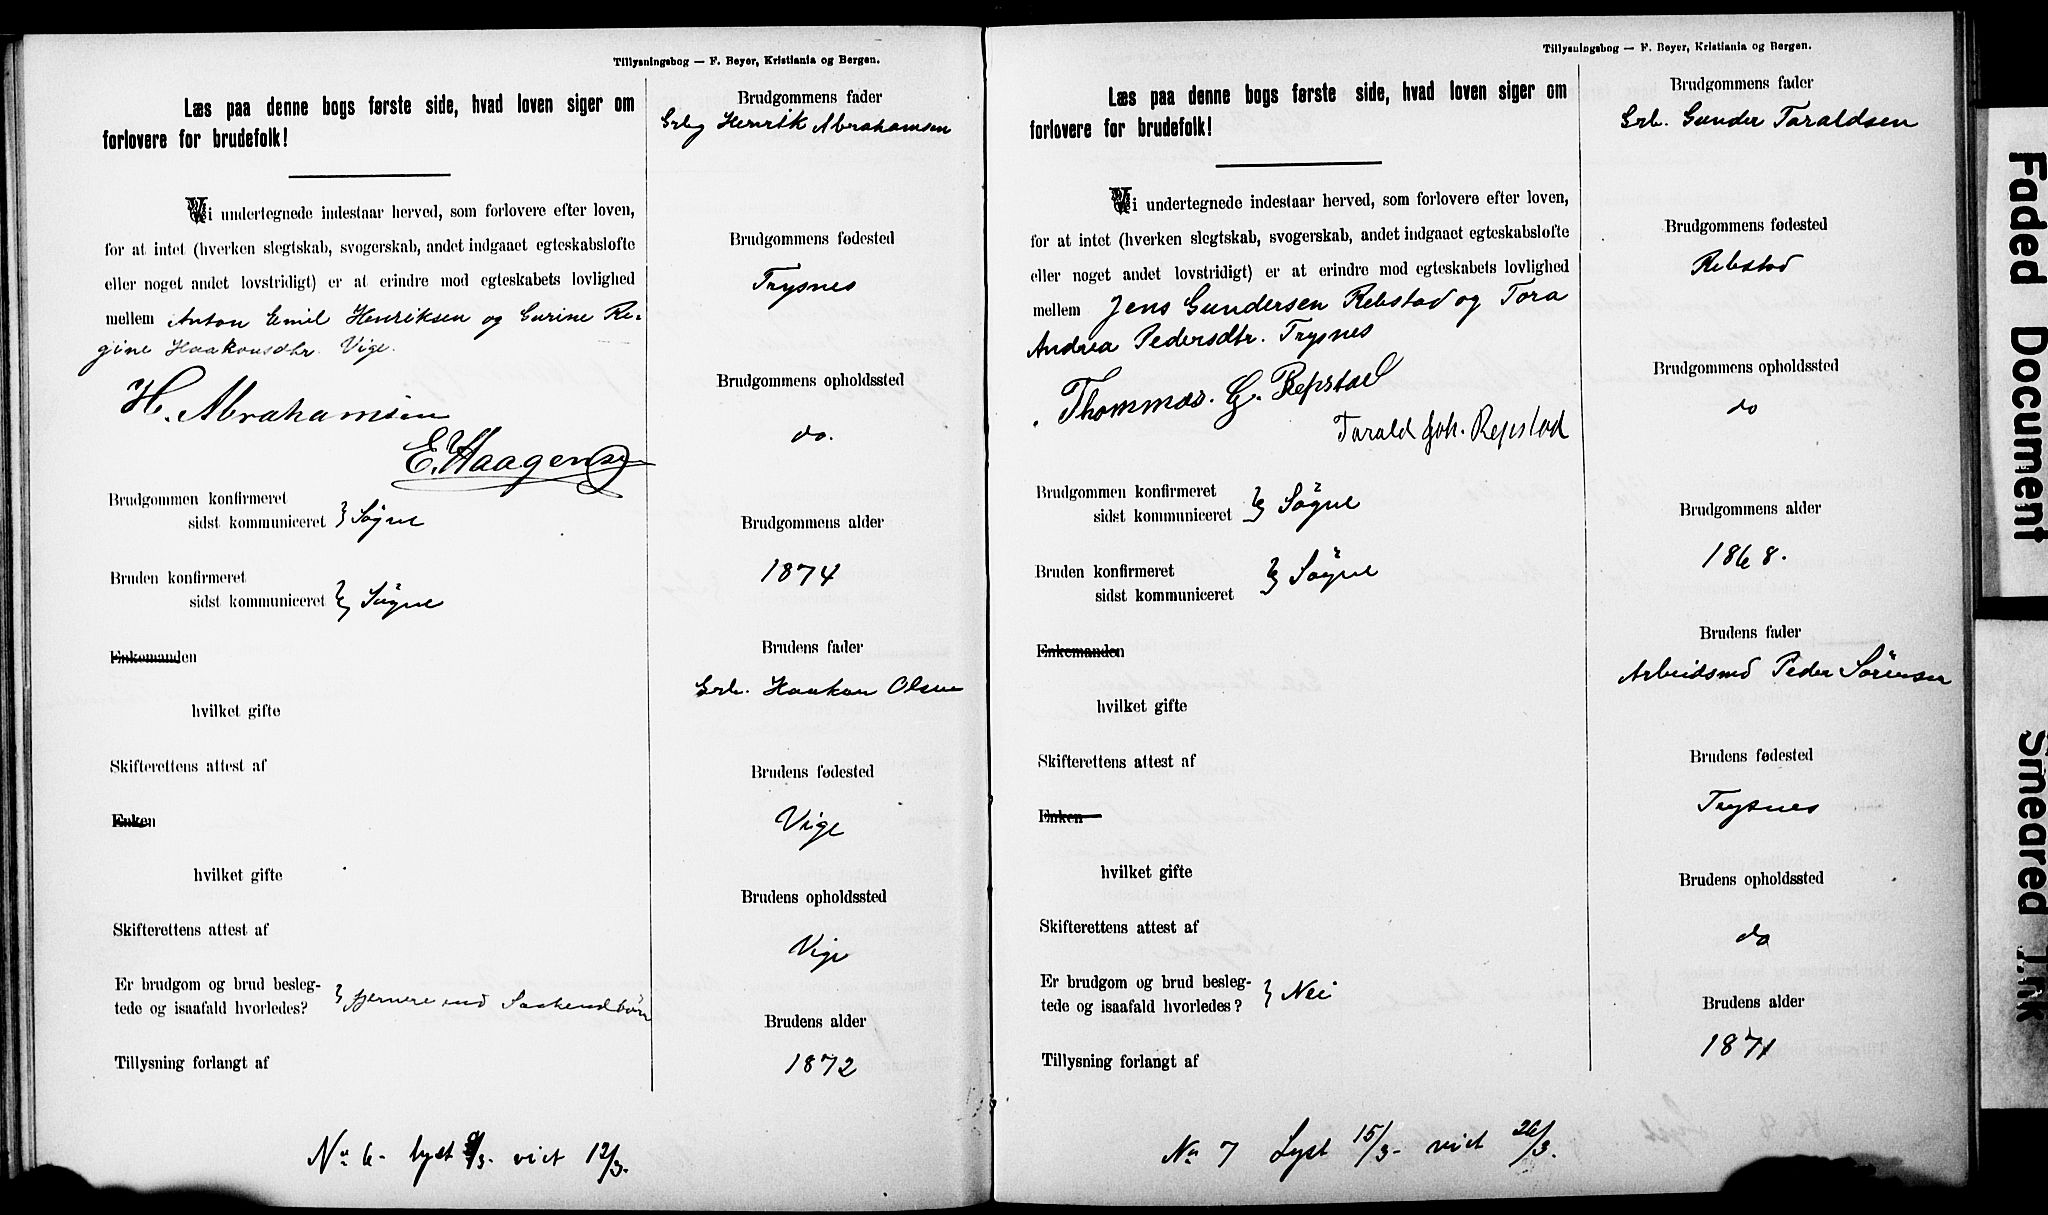 Tillysningsbog — F. Beyer, Kristiania og Bergen.
Læs paa denne bogs første side, hvad loven siger om
forlovere for brudefolk!
Vi undertegnede indestaar herved, som forlovere efter loven,
for at intet (hverken slegtskab, svogerskab, andet indgaaet egteskabsløfte
eller noget andet lovstridigt) er at erindre mod egteskabets lovlighed
mellem Anton Emil Henriksen og Gurine Re-
gine Haakonsdtr. Vige.
H. Abrahamsen
E. Haagensen
Brudgommen konfirmeret
sidst kommuniceret } Søgne
Bruden konfirmeret
sidst kommuniceret } Søgne
Enkemanden
hvilket gifte
Skifterettens attest af
Enken
hvilket gifte
Skifterettens attest af
Er brudgom og brud besleg-
tede og isaafald hvorledes? } fjernere end Søskendbørn
Tillysning forlangt af
Brudgommens fader
Grbg Henrik Abrahamsen
Brudgommens fødested
Trysnes
Brudgommens opholdssted
do.
Brudgommens alder
1874
Brudens fader
Grb. Haakon Olsen
Brudens fødested
Vige
Brudens opholdssted
Vige
Brudens alder
1872
No 6. lyst 8/3. viet 12/3.
Tillysningsbog — F. Beyer, Kristiania og Bergen.
Læs paa denne bogs første side, hvad loven siger om
forlovere for brudefolk!
Vi undertegnede indestaar herved, som forlovere efter loven,
for at intet (hverken slegtskab, svogerskab, andet indgaaet egteskabsløfte
eller noget andet lovstridigt) er at erindre mod egteskabets lovlighed
mellem Jens Gundersen Rebstad og Tora
Andrea Pedersdtr. Trysnes
Thommas. G. Repstad
Tarald Joh. Repstad
Brudgommen konfirmeret
sidst kommuniceret } Søgne
Bruden konfirmeret
sidst kommuniceret } Søgne
Enkemanden
hvilket gifte
Skifterettens attest af
Enken
hvilket gifte
Skifterettens attest af
Er brudgom og brud besleg-
tede og isaafald hvorledes? } Nei
Tillysning forlangt af
Brudgommens fader
Grb. Gunder Taraldsen
Brudgommens fødested
Rebstad
Brudgommens opholdssted
do
Brudgommens alder
1868.
Brudens fader
Arbeidsmd Peder Sørensen
Brudens fødested
Trysnes
Brudens opholdssted
do
Brudens alder
1871
No 7 Lyst 15/3. viet 26/3.
Faded Document
Smeared Ink